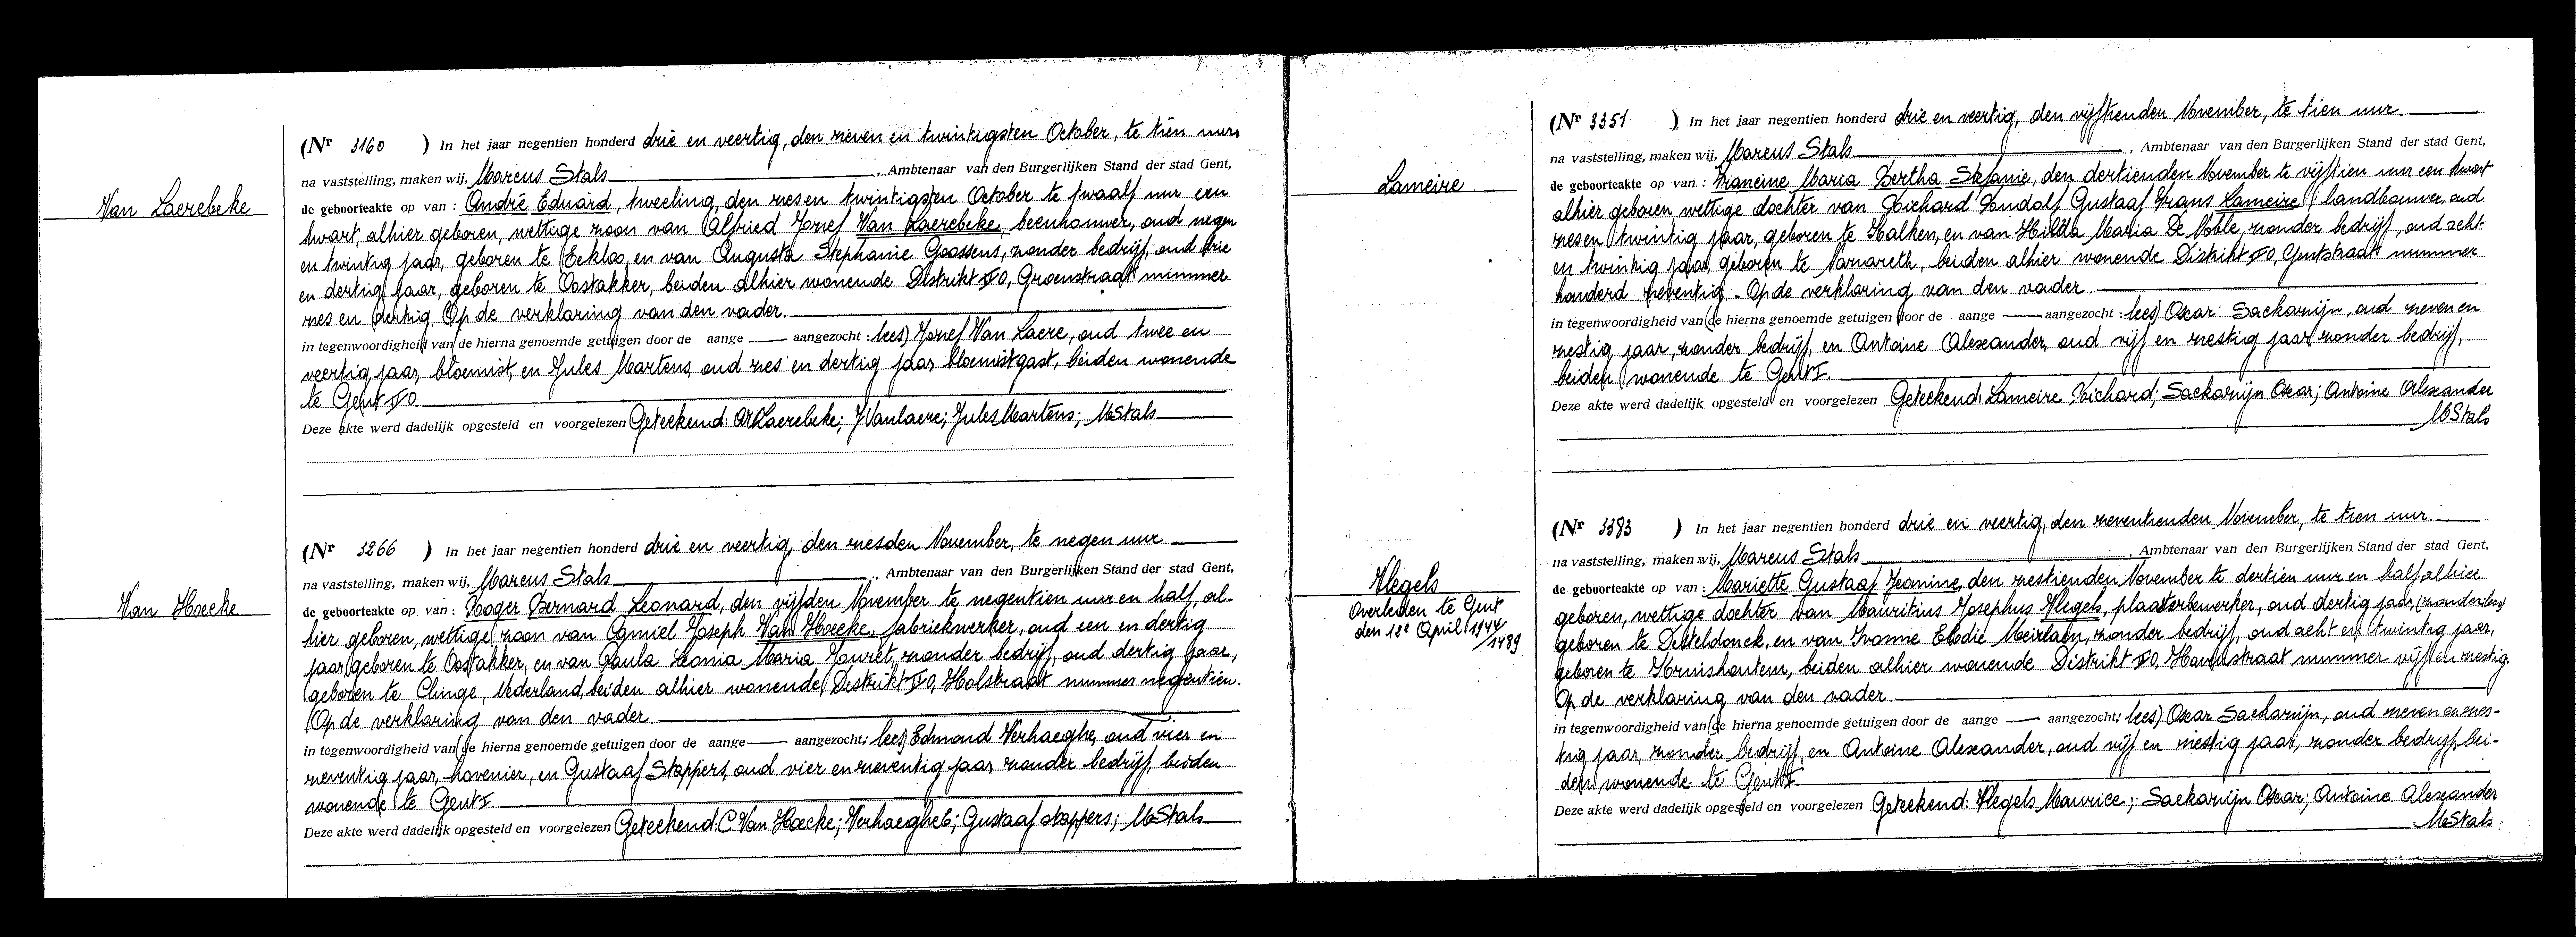 Van Laerebeke
(Nr 3160 ) In het jaar negentien honderd drie en veertig, den zeven en twintigsten October, te tien uur,
na vaststelling, maken wij, Marcus Stals , Ambtenaar van den Burgerlijken Stand der stad Gent,
de geboorteakte op van : André Eduard, tweeling, den zes en twintigsten October te twaalf uur een
kwart, alhier geboren, wettige zoon van Alfried Jozef Van Laerebeke, beenhouwer, oud negen
en twintig jaar, geboren te Eekloo, en van Augusta Stephanie Goossens, zonder bedrijf, oud drie
en dertig jaar, geboren te Oostakker, beiden alhier wonende Distrikt O, Groenstraat nummer
zes en dertig. Op de verklaring van den vader.
in tegenwoordigheid van de hierna genoemde getuigen door de aange — aangezocht : lees) Jozef Van Laere, oud twee en
veertig jaar, bloemist, en Jules Martens, oud zes en dertig jaar bloemistgast, beiden wonende
te Gent O.
Deze akte werd dadelijk opgesteld en voorgelezen Geteekend: Laerebeke; JVanlaere; Jules Martens; MStals
Van Hoecke
(Nr 3266 ) In het jaar negentien honderd drie en veertig, den zesden November, te negen uur
na vaststelling, maken wij, Marcus Stals , Ambtenaar van den Burgerlijken Stand der stad Gent,
de geboorteakte op van : Roger Bernard Leonard, den vijfden November te negentien uur en half, al-
hier geboren, wettige zoon van Camiel Joseph Van Hoecke, fabriekwerker, oud een en dertig
jaar, geboren te Oostakker, en van Paula Leonia Maria Jouret, zonder bedrijf, oud dertig jaar,
geboren te Clinge, Nederland, beiden alhier wonende Distrikt O, Holstraat nummer negentien.
Op de verklaring van den vader.
in tegenwoordigheid van de hierna genoemde getuigen door de aange — aangezocht : lees) Edmond Verhaeghe, oud vier en
zeventig jaar, hovenier, en Gustaaf Stappers, oud vier en zeventig jaar zonder bedrijf, beiden
wonende te Gent.
Deze akte werd dadelijk opgesteld en voorgelezen Geteekend: C Van Hoecke; Verhaeghe E; Gustaaf Stappers; MStals
Lameire
(Nr 3351 ) In het jaar negentien honderd drie en veertig, den vijftienden November, te tien uur.
na vaststelling, maken wij, Marcus Stals , Ambtenaar van den Burgerlijken Stand der stad Gent,
de geboorteakte op van : Francine Maria Bertha Stefanie, den dertienden November te vijftien uur een kwart
alhier geboren, wettige dochter van Richard Rudolf Gustaaf Frans Lameire, landbouwer, oud
zes en twintig jaar, geboren te Kalken, en van Hilda Maria De Noble, zonder bedrijf, oud acht
en twintig jaar geboren te Nazareth, beiden alhier wonende Distrikt O, Gentstraat nummer
honderd zeventig. Op de verklaring van den vader.
in tegenwoordigheid van de hierna genoemde getuigen door de aange — aangezocht : lees) Oscar Sackarnijn, oud zeven en
zestig jaar, zonder bedrijf, en Antoine Alexander, oud vijf en zestig jaar zonder bedrijf,
beiden wonende te Gent.
Deze akte werd dadelijk opgesteld en voorgelezen Geteekend: Lameire Richard; Sackarnijn Oscar; Antoine Alexander
MStals
Vlegels
Overleden te Gent
den 12e April 1944
/1489
(Nr 3383 ) In het jaar negentien honderd drie en veertig, den zeventienden November, te tien uur.
na vaststelling, maken wij, Marcus Stals , Ambtenaar van den Burgerlijken Stand der stad Gent,
de geboorteakte op van : Mariette Gustaaf Jeannine, den zestienden November te dertien uur en half alhier
geboren, wettige dochter van Mauritius Josephus Vlegels, plaasterbewerker, oud dertig jaar,
geboren te Desteldonck, en van Ivonne Elodie Meirlaen, zonder bedrijf, oud acht en twintig jaar,
geboren te Kruishoutem, beiden alhier wonende Distrikt O, Havenstraat nummer vijf en zestig.
Op de verklaring van den vader.
in tegenwoordigheid van de hierna genoemde getuigen door de aange — aangezocht : lees) Oscar Sackarnijn, oud zeven en zes-
tig jaar, zonder bedrijf, en Antoine Alexander, oud vijf en zestig jaar, zonder bedrijf, bei-
den wonende te Gent.
Deze akte werd dadelijk opgesteld en voorgelezen Geteekend: Vlegels Maurice; Sackarnijn Oscar; Antoine Alexander
MStals